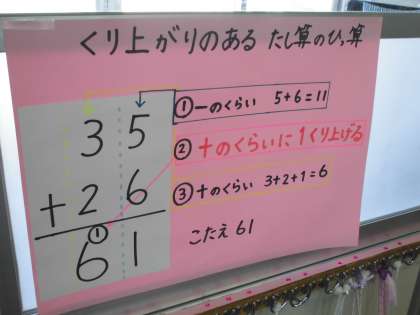 くり上がりのある たし算のひっ算
35
+26
①
61
①一のくらい 5+6=11
②十のくらいに1くり上げる
③十のくらい 3+2+1=6
こたえ 61